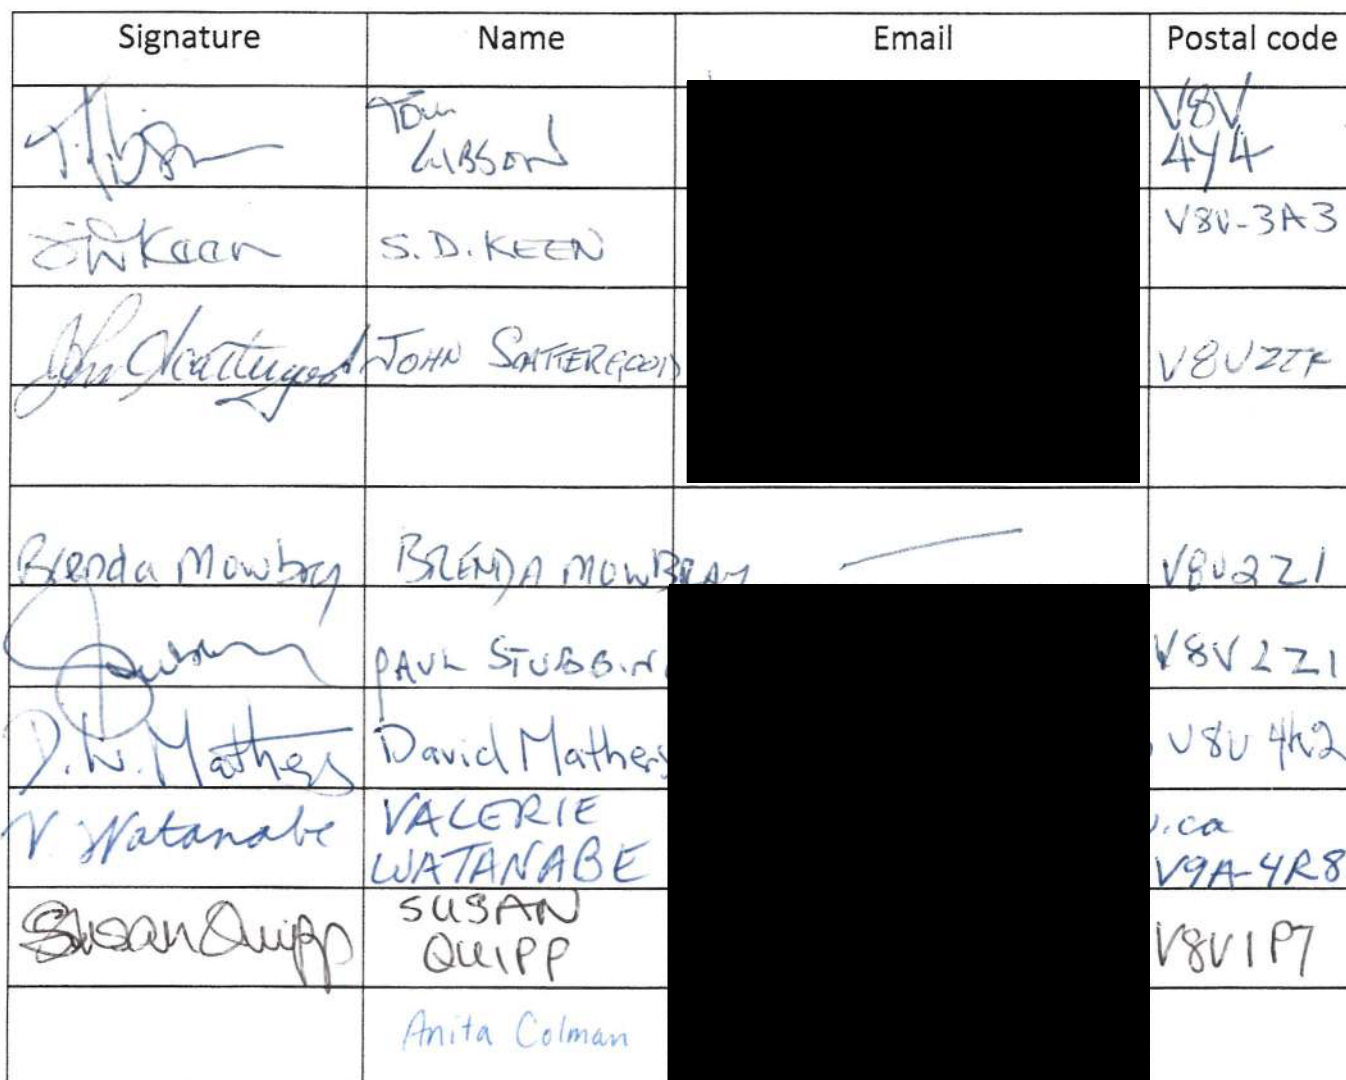 Signature Name Email Postal code
Tom
GIBSON
V8V
4Y4
S.D. KEEN
V8V-3A3
John Scattergood JOHN SCATTERGOOD
Brenda Mowbray BRENDA MOWBRAY V8V2Z1
PAUL STUBBIN V8V2Z1
D.W. Mathers David Mathers V8V 4K2
V Watanabe VALERIE
WATANABE
.ca
V9A-4R8
Susan Quipp SUSAN
QUIPP
V8V1P7
Anita Colman